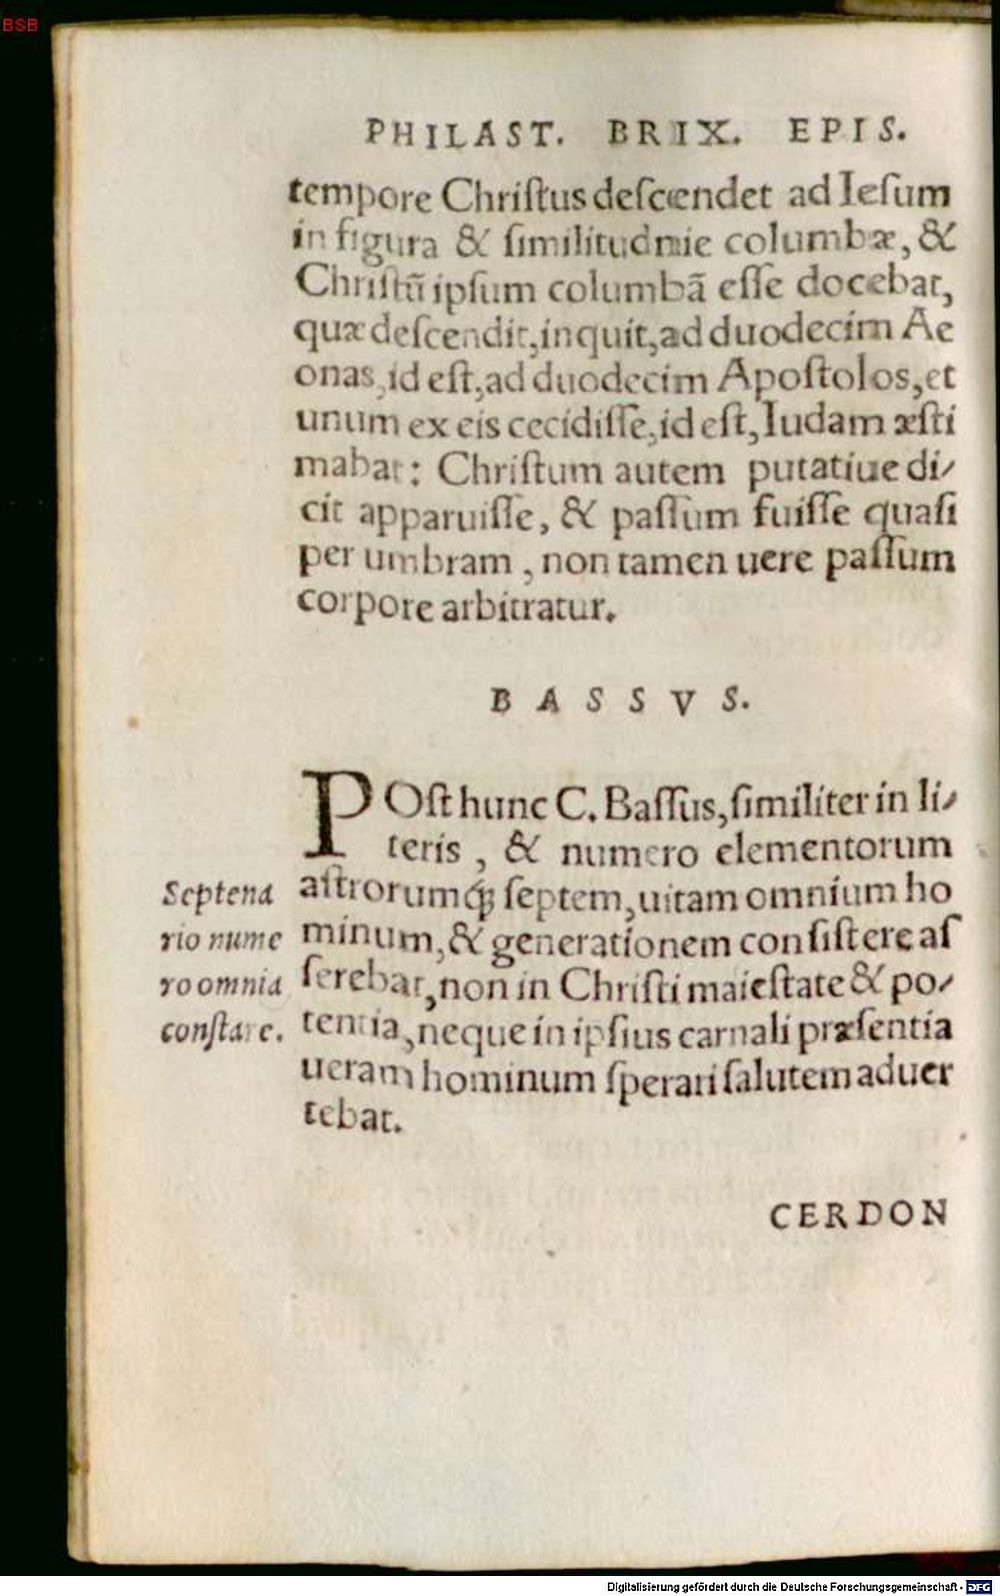 BSB
PHILAST. BRIX. EPIS.
tempore Chriſtus deſcendet ad Ieſum
in figura & ſimilitudnie columbæ, &
Chriſtū ipſum columbā eſſe docebat,
quæ deſcendit, inquit, ad duodecim Ae
onas, id eſt, ad duodecim Apoſtolos, et
unum ex eis cecidiſſe, id eſt, Iudam æſti
mabat: Chriſtum autem putatiue di⸗
cit apparuiſſe, & paſſum fuiſſe quaſi
per umbram, non tamen uere paſſum
corpore arbitratur.
BASSVS.
POſt hunc C. Baſſus, ſimiliter in li⸗
teris, & numero elementorum
aſtrorumq́; ſeptem, uitam omnium ho
minum, & generationem conſiſtere aſ
ſerebat, non in Chriſti maieſtate & po⸗
tentia, neque in ipſius carnali præſentia
ueram hominum ſperari ſalutem aduer
tebat.
Septena
rio nume
ro omnia
conſtare.
CERDON
Digitalisierung gefördert durch die Deutsche Forschungsgemeinschaft - DFG